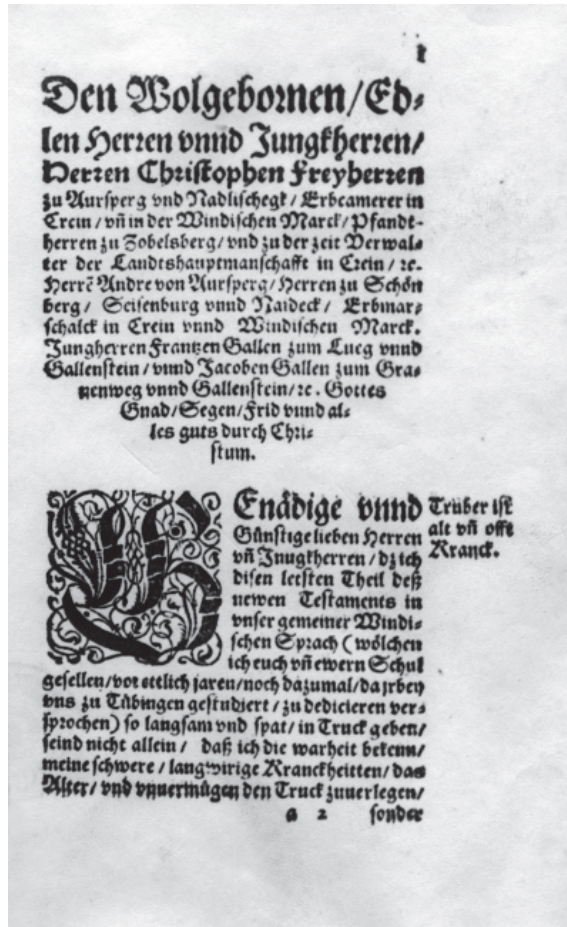 1
Den Wolgebornen/Ed⸗
len Herren vnnd Jungkherren/
Herren Christophen Freyherren
zu Aursperg vnd Nadlischegk/Erbcamerer in
Crein/vñ in der Windischen Marck/Pfandt⸗
herren zu Zobelsberg/vnd zu der zeit Verwal⸗
ter der Landtshauptmanschafft in Crein/ ꝛc.
Herrẽ Andre von Aursperg/Herren zu Schön
berg/ Seisenburg vnnd Naideck/ Erbmar⸗
schalck in Crein vnnd Windischen Marck.
Jungherren Frantzen Gallen zum Lueg vnnd
Gallenstein/vnnd Jacoben Gallen zum Gra⸗
uenweg vnnd Gallenstein/ꝛc. Gottes
Gnad/Segen/Frid vnnd al⸗
les guts durch Chri⸗
stum.
GEnädige vnnd
Günstige lieben Herren
vñ Jnugkherren/dz ich
disen letsten Theil deß
newen Testaments in
vnser gemeiner Windi⸗
schen Sprach (wölchen
ich euch vñ ewern Schul
gesellen/vor ettlich jaren/noch dazumal/da jr bey
vns zu Tübingen gestudiert/zu dedicieren ver⸗
sprochen) so langsam vnd spat/in Truck geben/
seind nicht allein/ daß ich die warheit bekenn/
meine schwere/langwirige Kranckheitten/das
Alter/vnd vnuermügen den Truck zuuerlegen/
a 2 sonder
Truber ist
alt vñ offt
Kranck.